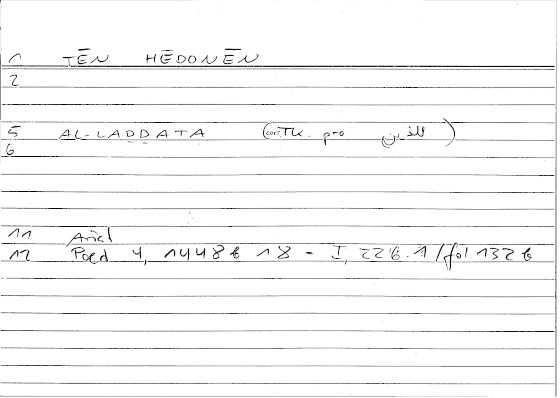 1 TĒN HĒDONĒN
2
5 AL-LADDATA (corr. Tk. pro للذين)
6
11 Arist
12 Poet 4, 1448 b 18 - I, 226.1 / fol. 132 b